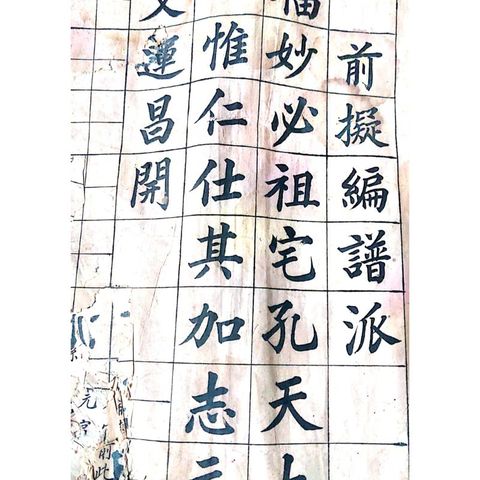 前擬編譜派
福妙必祖宅孔天
惟仁仕其加志
文運昌開